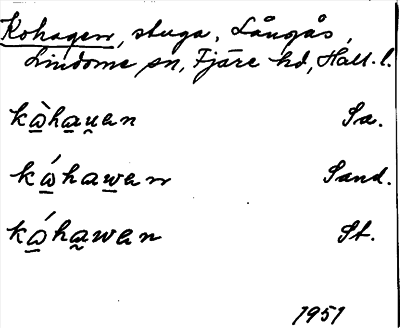 Kohagen, stuga, Långås,
Lindome sn, Fjäre hd, Hall. l.
kòhau̯en Sa.
kóhawen Sand.
kóhawen St.
1951